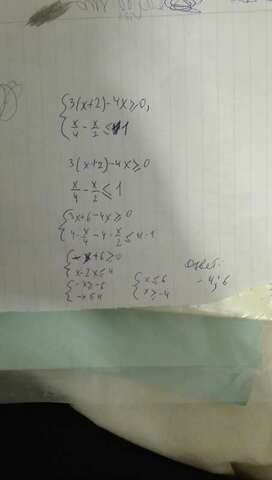 {3(x+2)-4x≥0,
{x/4 - x/2 ≤ 1
3(x+2)-4x≥0
x/4 - x/2 ≤ 1
{3x+6-4x≥0
{4·x/4 - 4·x/2 ≤ 4·1
{-x+6≥0
{x-2x≤4
{-x≥-6
{-x≤4
{x≤6
{x≥-4
Ответ:
-4; 6